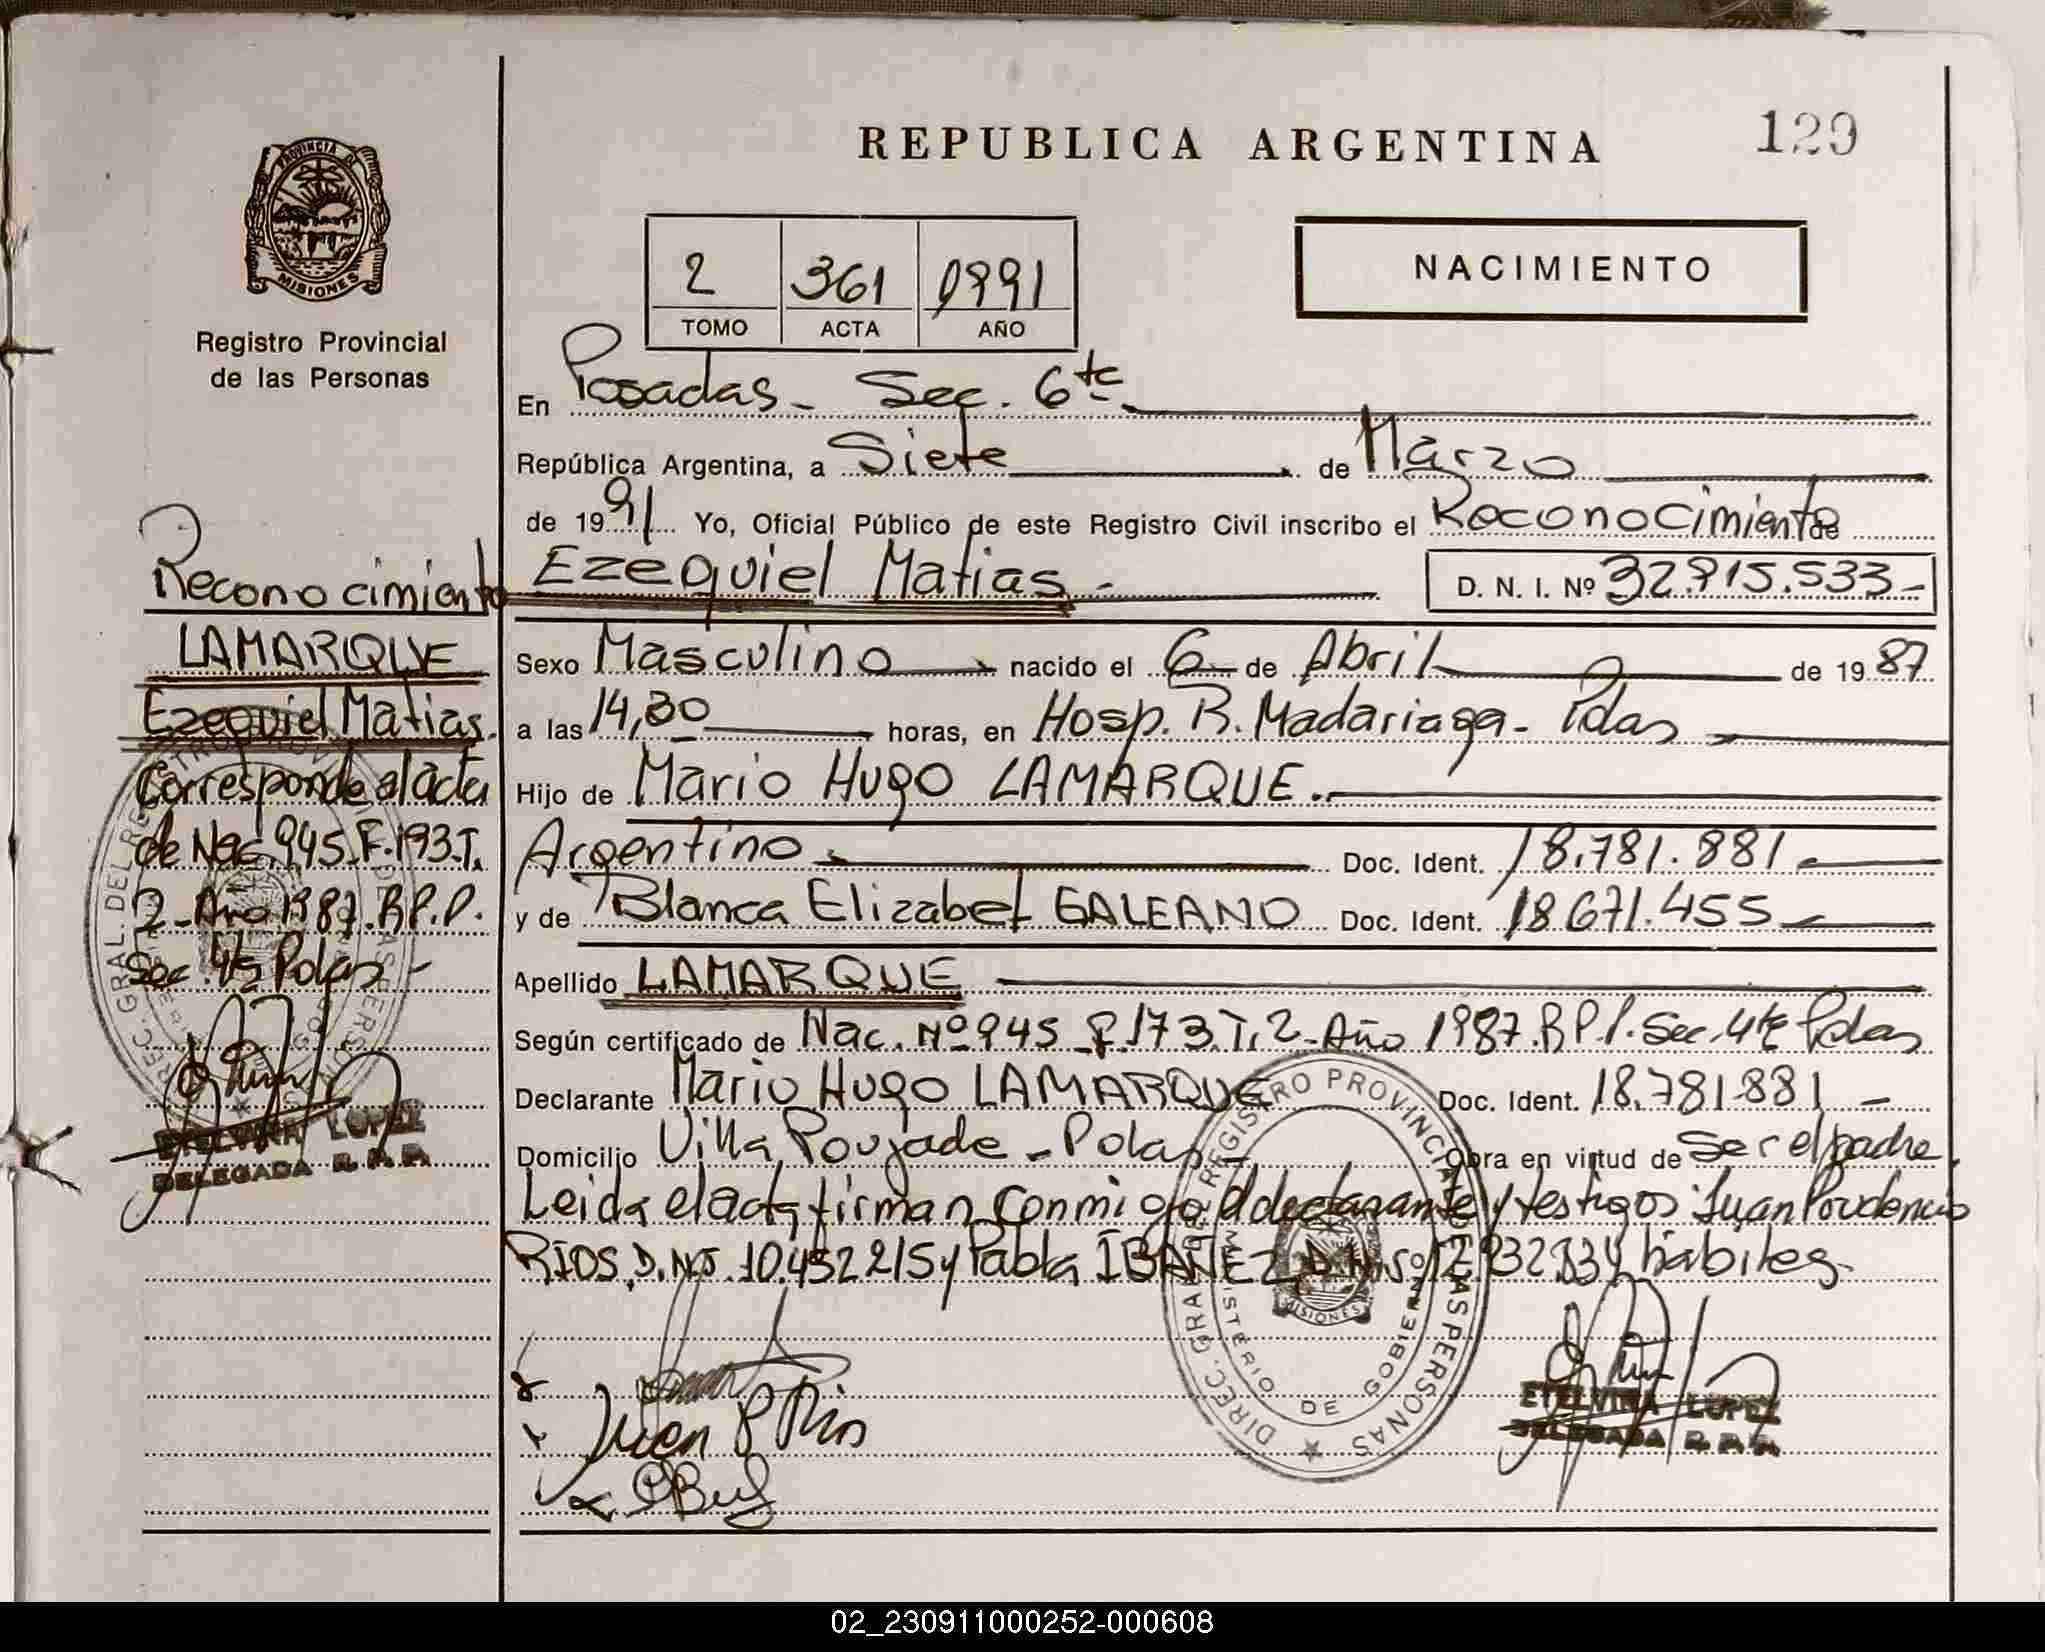 REPUBLICA ARGENTINA
129
PROVINCIA DE
MISIONES
Registro Provincial
de las Personas
2 361 1991
TOMO ACTA AÑO
NACIMIENTO
En Posadas - Sec. 6ta
República Argentina, a Siete de Marzo
de 1991 Yo, Oficial Público de este Registro Civil inscribo el Reconocimiento de
Ezequiel Matias - D. N. I. Nº 32.915.533 -
Sexo Masculino nacido el 6 de Abril de 1987
a las 14,30 horas, en Hosp. R. Madariaga - Pdas
Hijo de Mario Hugo LAMARQUE.-
Argentino Doc. Ident. 18.781.881
y de Blanca Elizabet GALEANO Doc. Ident. 18.671.455
Apellido LAMARQUE
Según certificado de Nac. Nº 945 F. 173. T. 2 - Año 1987. R.P.P. Sec. 4ta Pdas
Declarante Mario Hugo LAMARQUE Doc. Ident. 18.781.881 -
Domicilio Villa Poujade - Pdas - Obra en virtud de Ser el padre.
Leida el acta, firman conmigo el declarante y testigos: Juan Prudencio
RIOS, D.N.I. 10.432.215 y Pabla IBAÑEZ, hábiles.
Juan P Rios
ETELVINA LOPEZ
DELEGADA R.P.P.
DIREC. GRAL. DEL REGISTRO PROVINCIAL DE LAS PERSONAS
MINISTERIO DE GOBIERNO
MISIONES
Reconocimiento
LAMARQUE
Ezequiel Matias.
Corresponde al acta
de Nac. 945. F. 193. T.
2 - Año 1987. R.P.P.
Sec. 4ta Pdas -
ETELVINA LOPEZ
DELEGADA R.P.P.
02_230911000252-000608